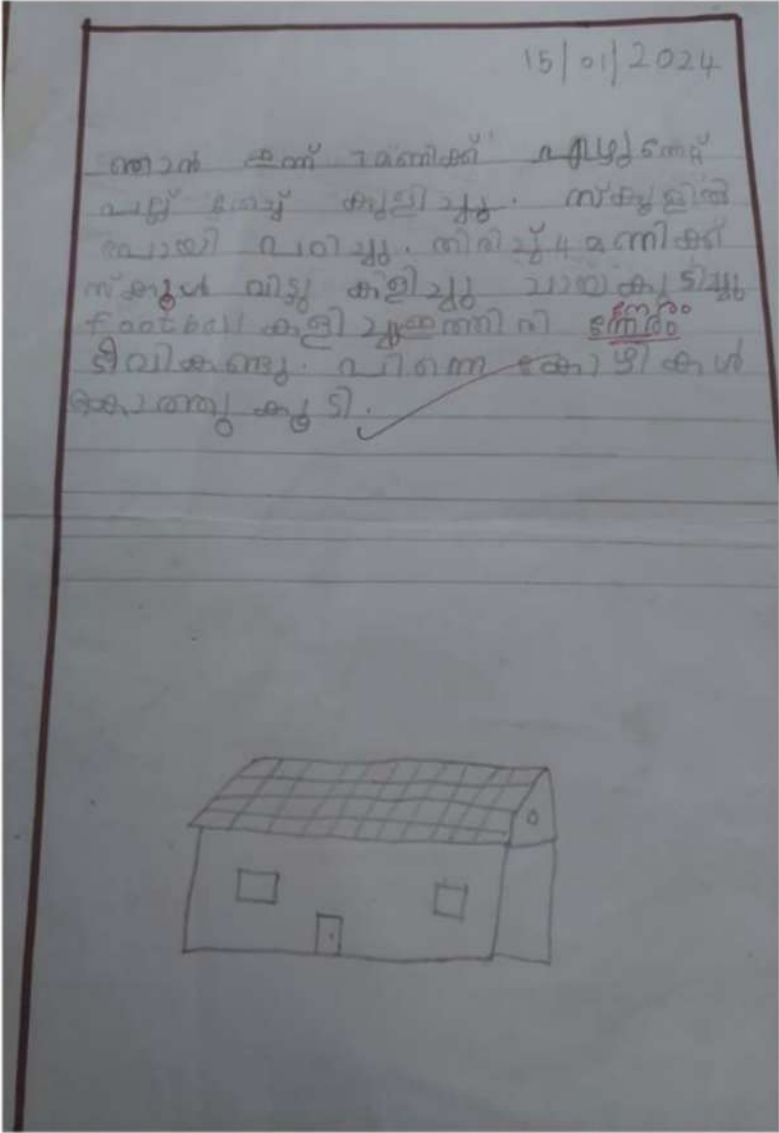 15/01/2024
ഞാൻ ഇന്ന് 7 മണിക്ക് എഴുന്നേറ്റ്
പല്ല് തേച്ച് കുളിച്ചു. സ്കൂളിൽ
പോയി പഠിച്ചു. തിരിച്ച് 4 മണിക്ക്
സ്കൂൾ വിട്ടു കുളിച്ചു ചായകുടിച്ചു
football കളിച്ചു ഇത്തിരി നേരം
ടീവികണ്ടു. പിന്നെ കോഴികൾ